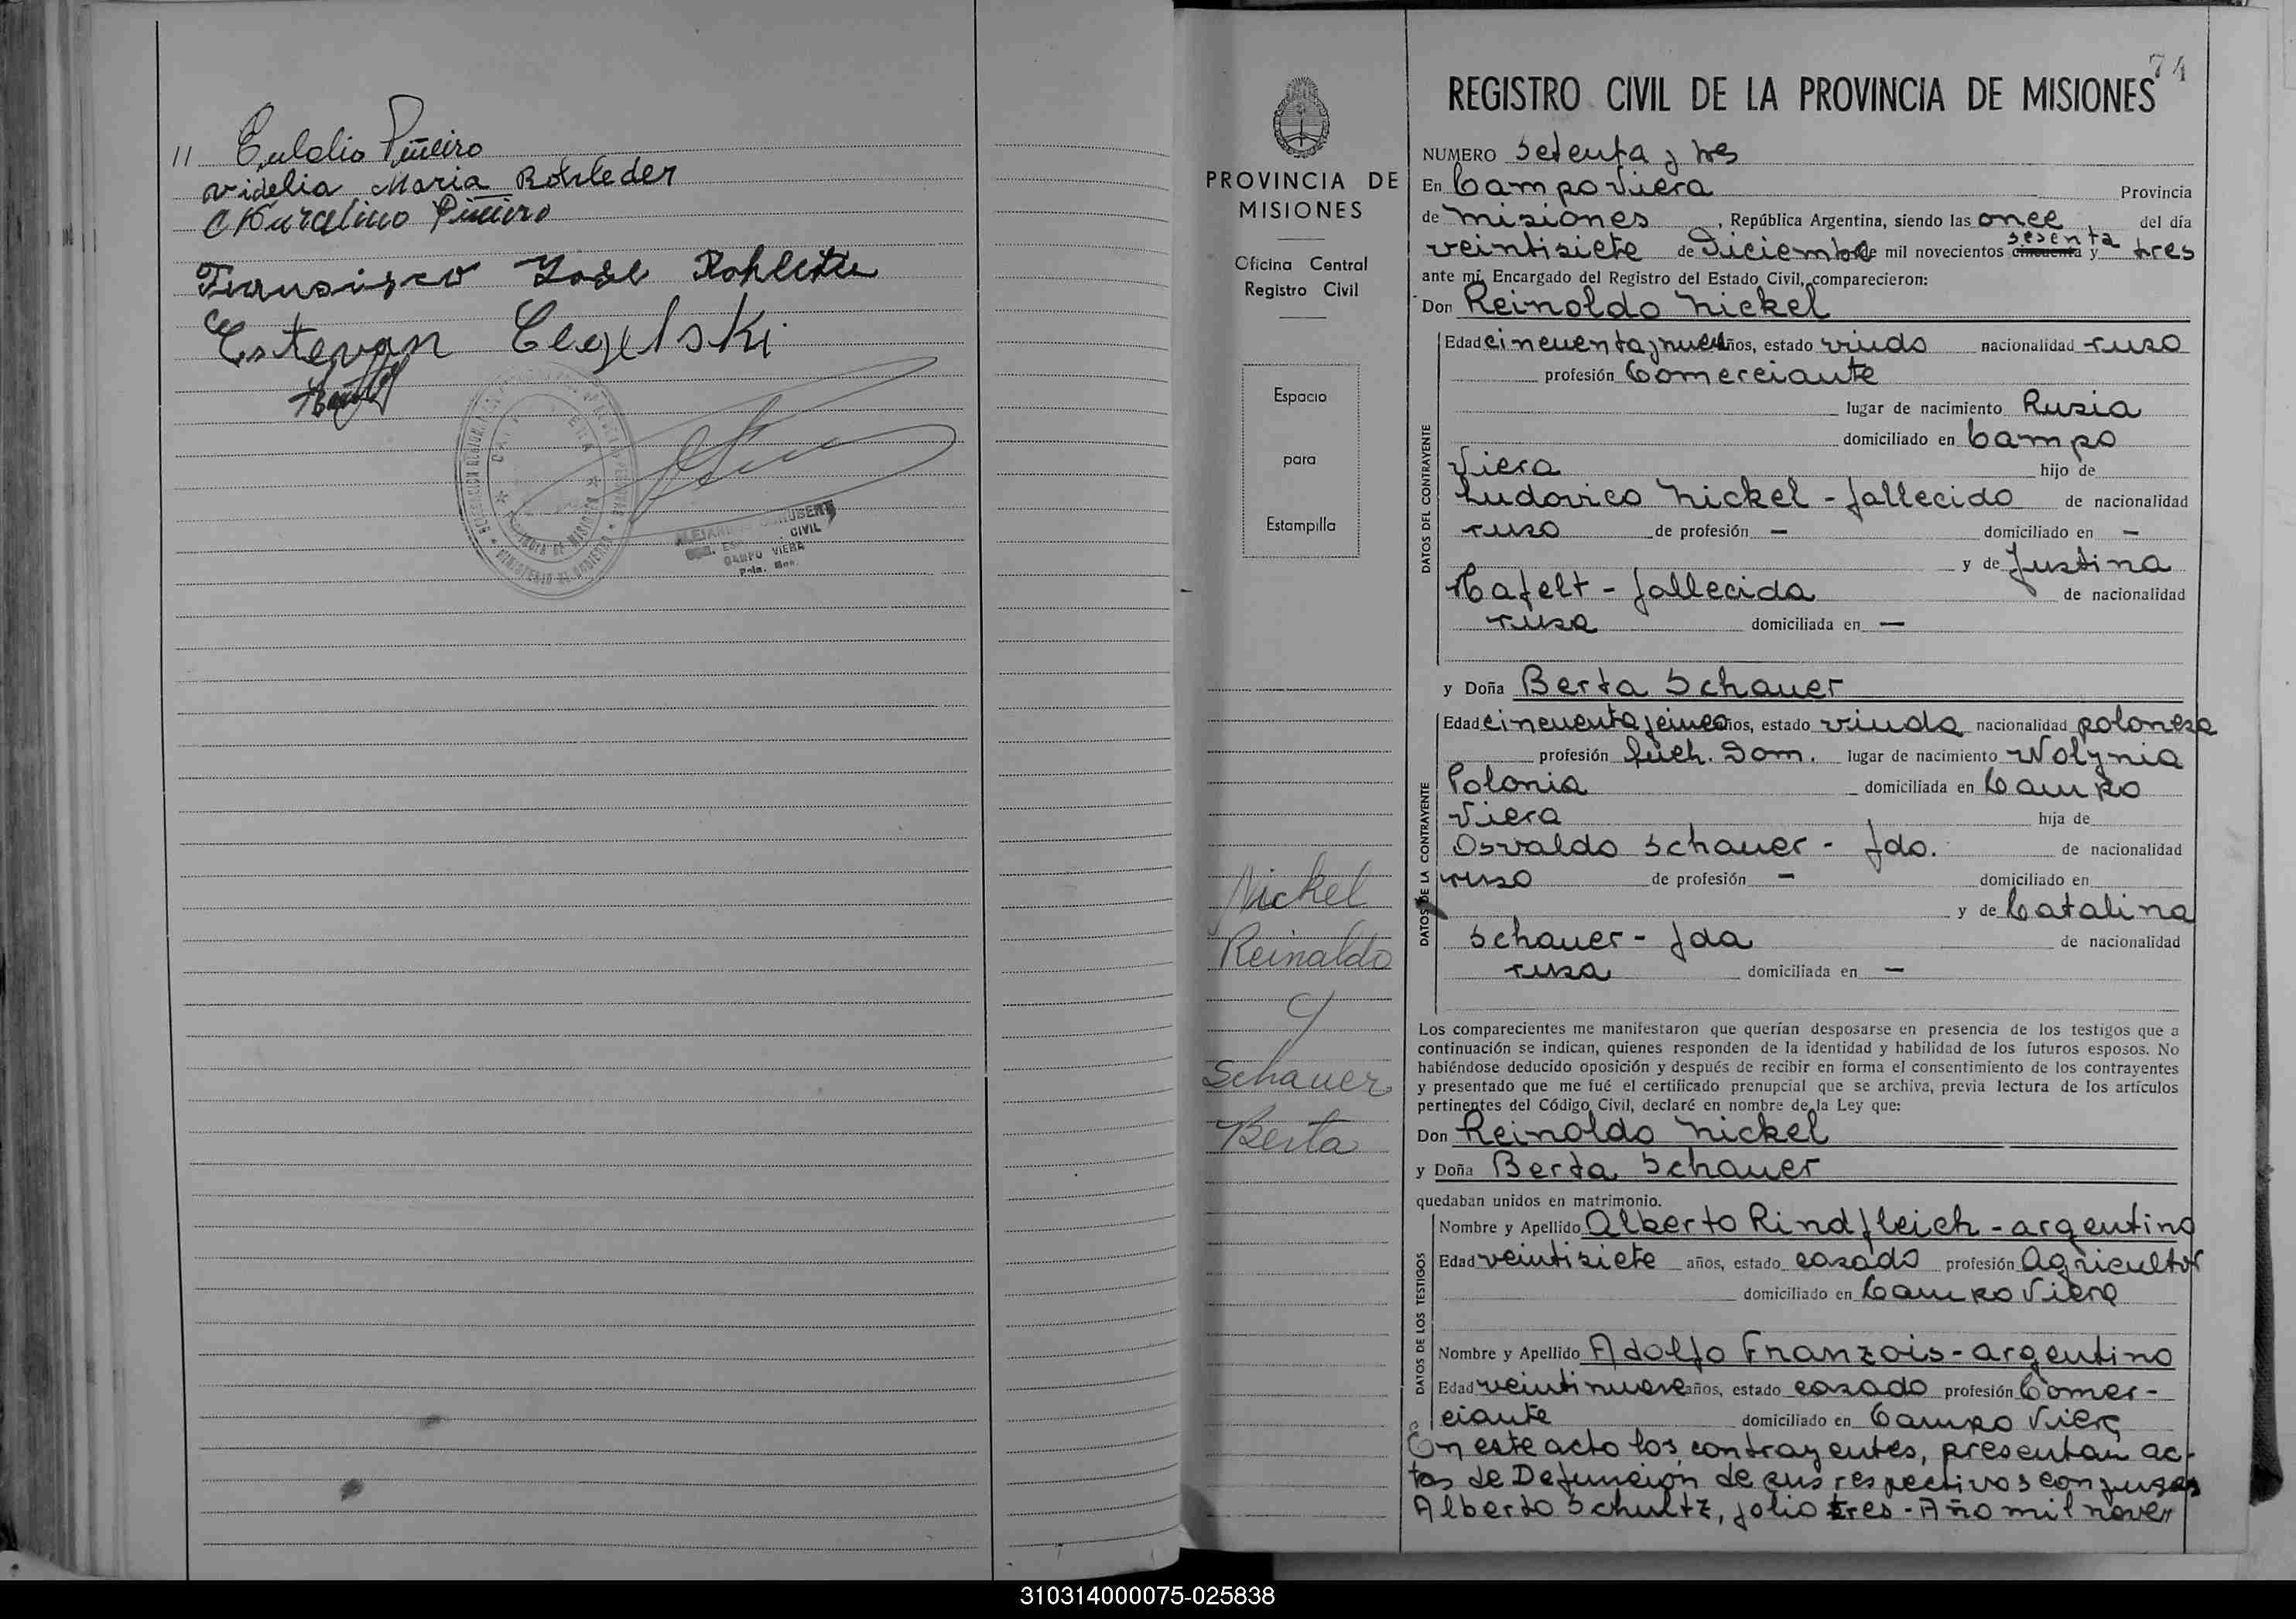 11 Eulalio Piñeiro
Videlia Maria Rohleder
Marcelino Piñeiro
Francisco José Rohleder
Estevan Cegelski
CIVIL
CAMPO VIERA
PROVINCIA DE MISIONES
MINISTERIO DE GOBIERNO
PROVINCIA DE
MISIONES
Oficina Central
Registro Civil
Espacio
para
Estampilla
Nickel
Reinaldo
y
Schauer
Berta
74
REGISTRO CIVIL DE LA PROVINCIA DE MISIONES
NUMERO Setenta y tres
En Campo Viera Provincia
de Misiones, República Argentina, siendo las once del día
veintisiete de Diciembre de mil novecientos cincuenta sesenta y tres
ante mí, Encargado del Registro del Estado Civil, comparecieron:
Don Reinoldo Nickel
DATOS DEL CONTRAYENTE
Edad cincuenta y nueve años, estado viudo nacionalidad ruso
profesión Comerciante
lugar de nacimiento Rusia
domiciliado en Campo
Viera hijo de
Ludovico Nickel - fallecido de nacionalidad
ruso de profesión — domiciliado en —
y de Justina
Hafelt - fallecida de nacionalidad
rusa domiciliada en —
y Doña Berta Schauer
DATOS DE LA CONTRAYENTE
Edad cincuenta y cinco años, estado viuda nacionalidad polonesa
profesión Queh. Dom. lugar de nacimiento Wolynia
Polonia domiciliada en Campo
Viera hija de
Osvaldo Schauer - fdo. de nacionalidad
ruso de profesión — domiciliado en
y de Catalina
Schauer - fda de nacionalidad
rusa domiciliada en —
Los comparecientes me manifestaron que querían desposarse en presencia de los testigos que a
continuación se indican, quienes responden de la identidad y habilidad de los futuros esposos. No
habiéndose deducido oposición y después de recibir en forma el consentimiento de los contrayentes
y presentado que me fué el certificado prenupcial que se archiva, previa lectura de los artículos
pertinentes del Código Civil, declaré en nombre de la Ley que:
Don Reinoldo Nickel
y Doña Berta Schauer
quedaban unidos en matrimonio.
DATOS DE LOS TESTIGOS
Nombre y Apellido Alberto Rindfleich - argentino
Edad veintisiete años, estado casado profesión Agricultor
domiciliado en Campo Viera
Nombre y Apellido Adolfo Franzois - argentino
Edad veintinueve años, estado casado profesión Comer-
ciante domiciliado en Campo Viera
En este acto los contrayentes, presentan ac-
tas de Defunción de sus respectivos conjuges
Alberto Schultz, folio tres - Año mil nove-
310314000075-025838